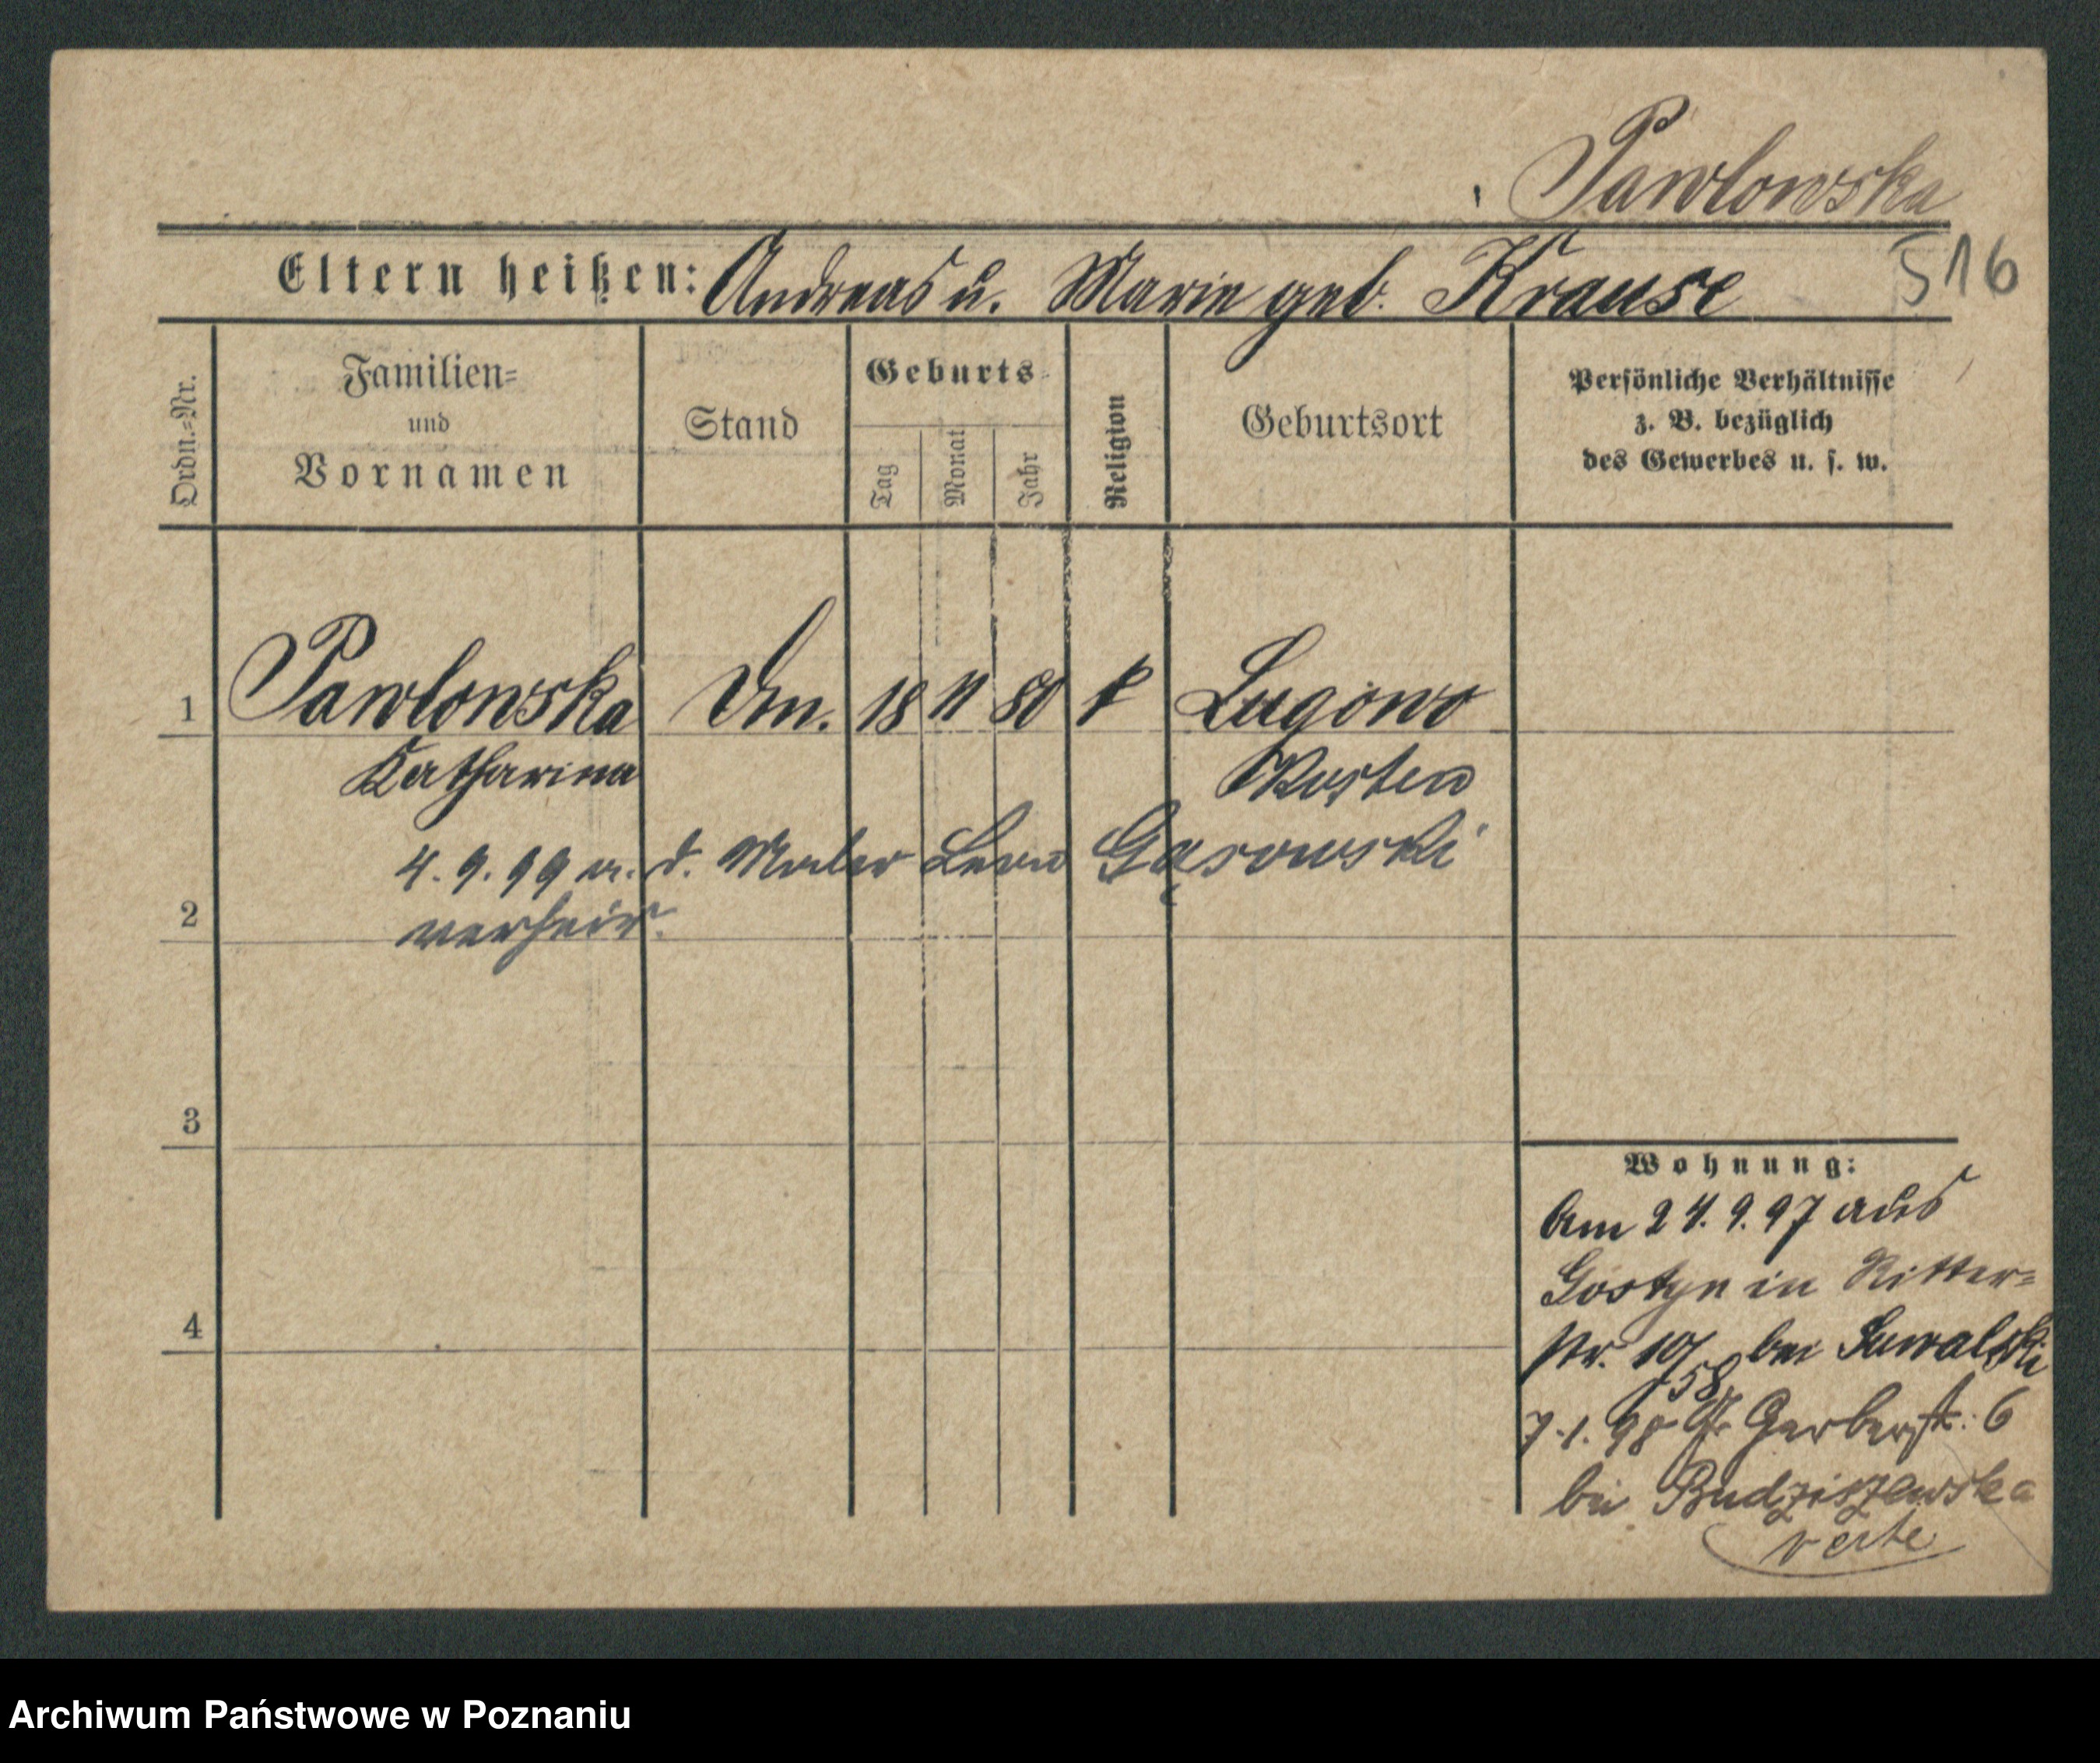 Pawlowska
516
Eltern heißen: Andreas u. Marie geb. Krause
Ordn.-Nr.
Familien-
und
Vornamen
Stand
Geburts
Tag
Monat
Jahr
Religion
Geburtsort
Persönliche Verhältnisse
z. B. bezüglich
des Gewerbes u. s. w.
1 Pawlowska 18 11 80 k Lugowo
Katharina Kosten
4. 9. 99 m. d. Maler Leon Gąsowski
2 verheir.
3
4
Wohnung:
Am 24. 9. 97 aus
Gostyn in Ritter-
str. 10 bei Suwalski
58
7. 1. 98 Gr. Gerberstr. 6
bei Budziszewska
verte
Archiwum Państwowe w Poznaniu